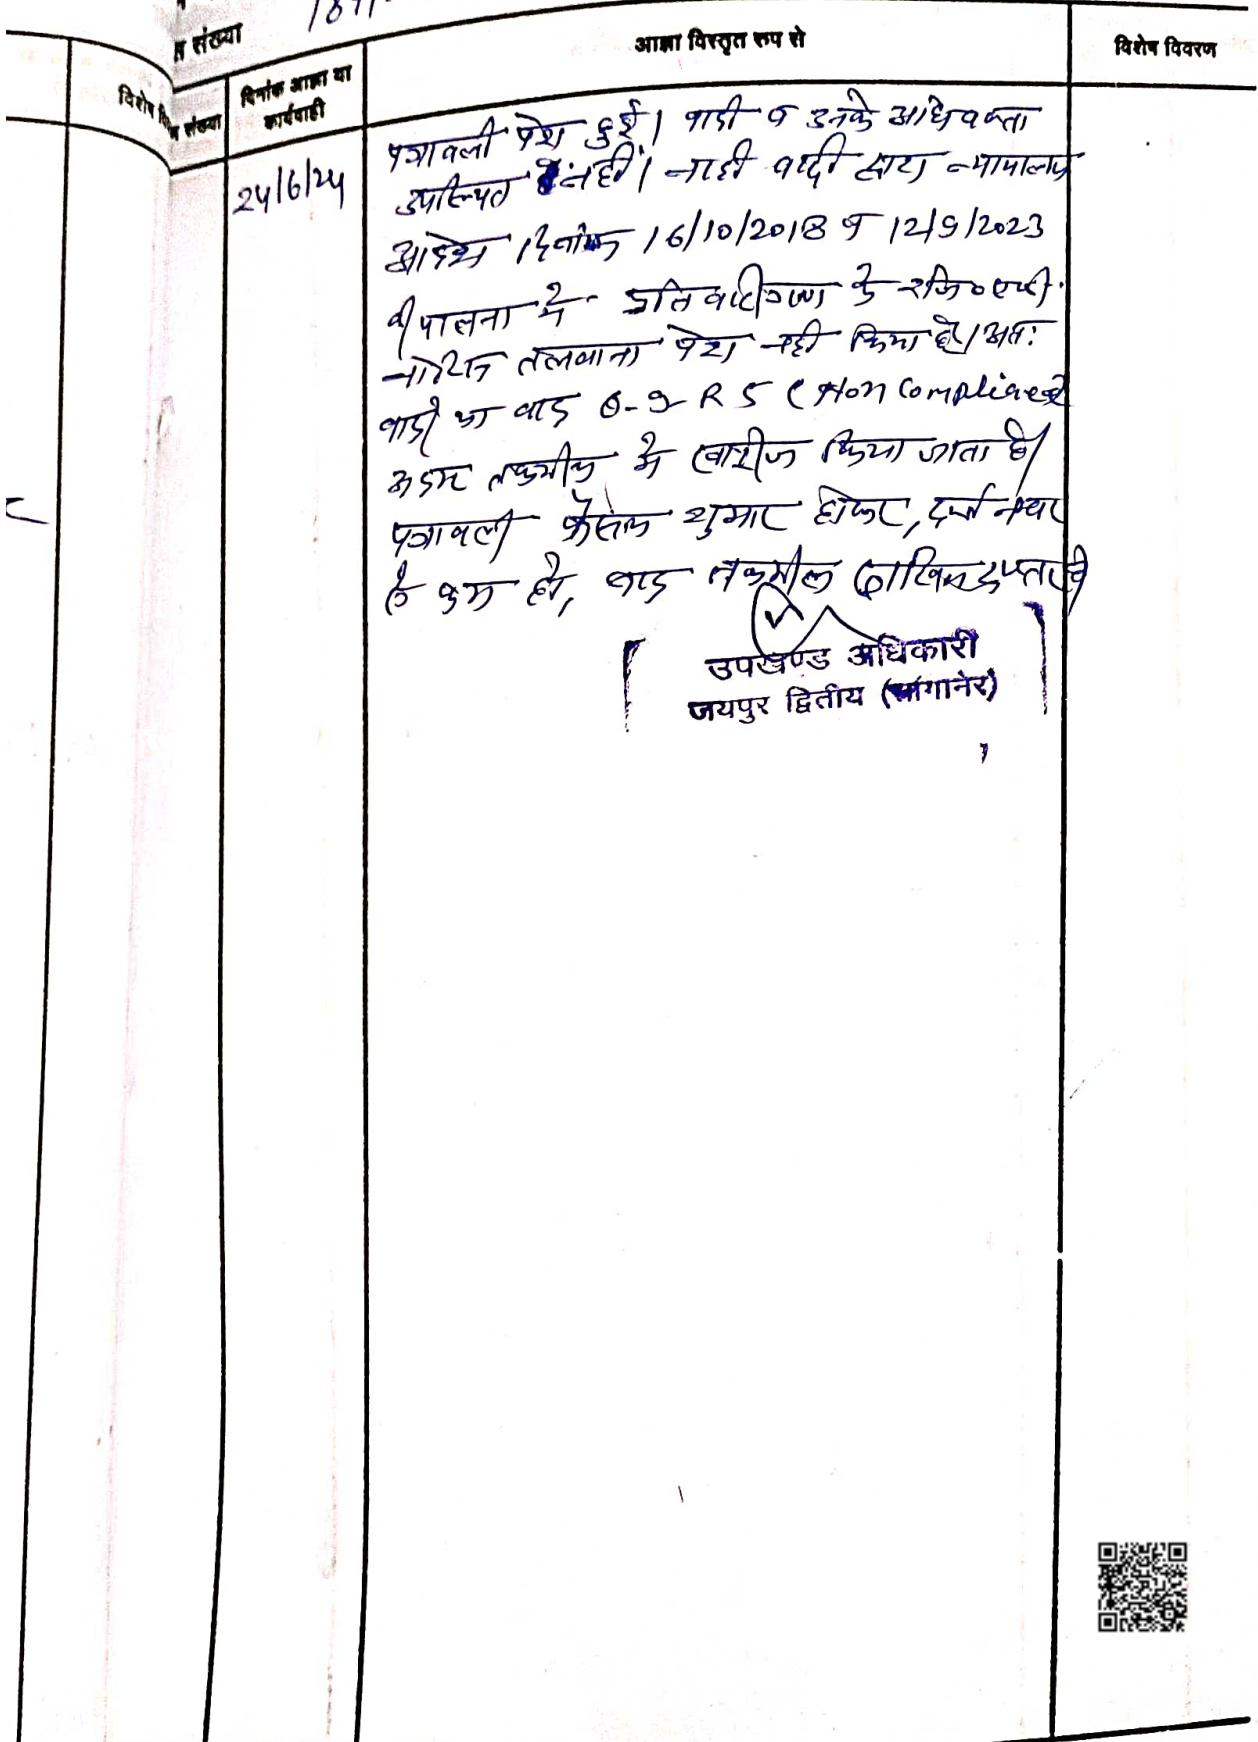 संख्या
आज्ञा विस्तृत रूप से
विशेष विवरण
विशेष
संख्या
दिनांक आज्ञा या
कार्यवाही
24/6/24
पत्रावली पेश हुई। वादी व उनके अधिवक्ता
उपस्थित नहीं। नाही वादी द्वारा न्यायालय
आदेश दिनांक 16/10/2018 व 12/9/2023
की पालना में प्रतिवादीगण के रजि० एडी.
नोटिस तलवाना पेश नही किया है। अतः
वादी का वाद 0-9 R 5 (Non Compliance
अदम तकमील में खारीज किया जाता है।
पत्रावली फैसल शुमार होकर, दर्ज नम्बर
से कम हो, बाद तकमील दाखिल दफ्तर हो
उपखण्ड अधिकारी
जयपुर द्वितीय (सांगानेर)